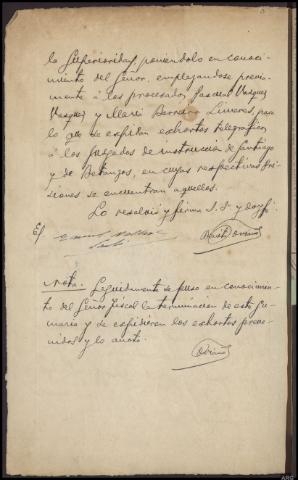 la Superioridad, poniéndolo en conoci-
miento del Señor, emplazandose previa-
mente á los procesados Vazquez
Vazquez y Barreiro Linares, para
lo que se expidan exhortos telegráficos
á los Juzgados de instrucción de Santiago
y de Betanzos, en cuyas respectivas pri-
siones se encuentran aquellos.
Lo resolvió y firma S. Sª y doy fé.
Nota. Seguidamente se puso en conocimien-
to del Señor Fiscal la terminacion de este su-
mario y se expidieron los exhortos preve-
nidos y lo anoto.